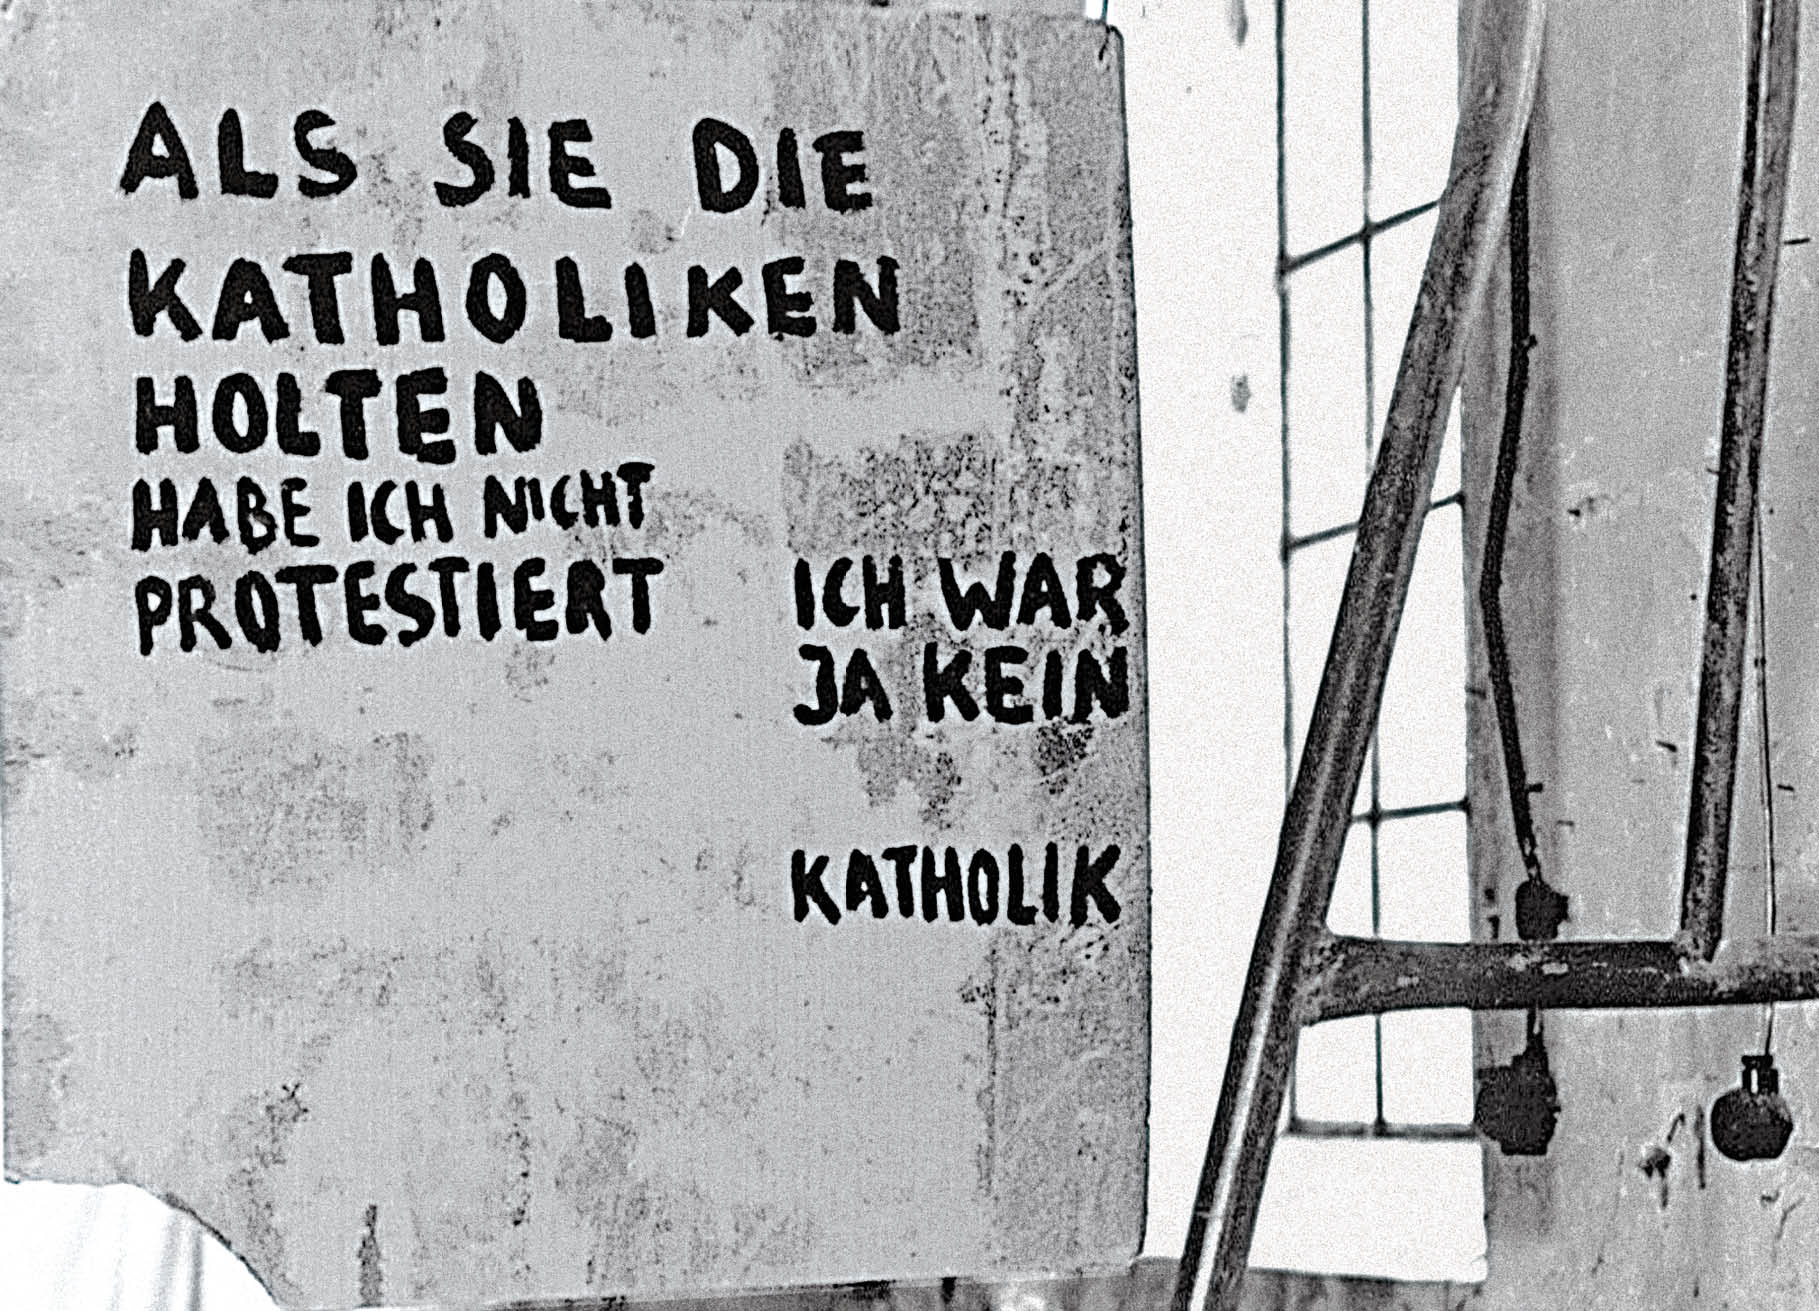 ALS SIE DIE
KATHOLIKEN
HOLTEN
HABE ICH NICHT
PROTESTIERT
ICH WAR
JA KEIN
KATHOLIK